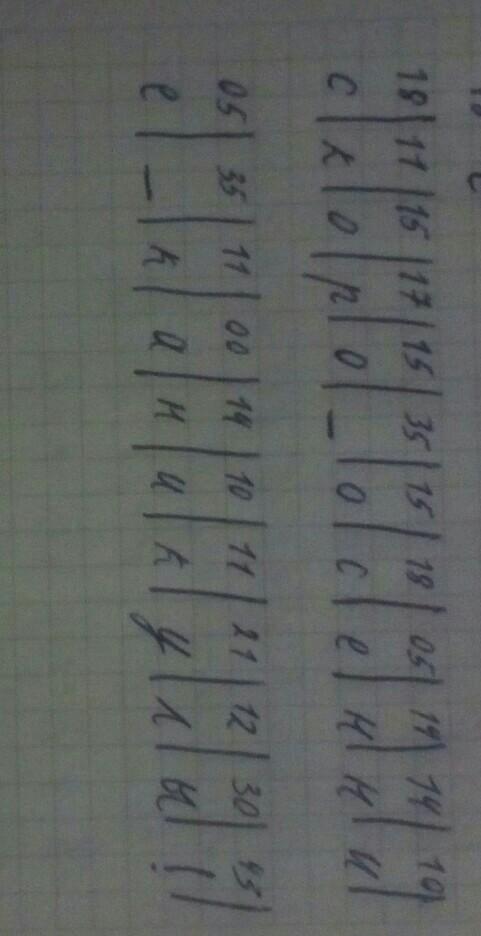 18|11|15|17|15|35|15|18|05|14|14|10
с|к|о|р|о|_|о|с|е|н|н|и|
05|35|11|00|14|10|11|21|12|30|45|
е|_|к|а|н|и|к|у|л|ы|!|